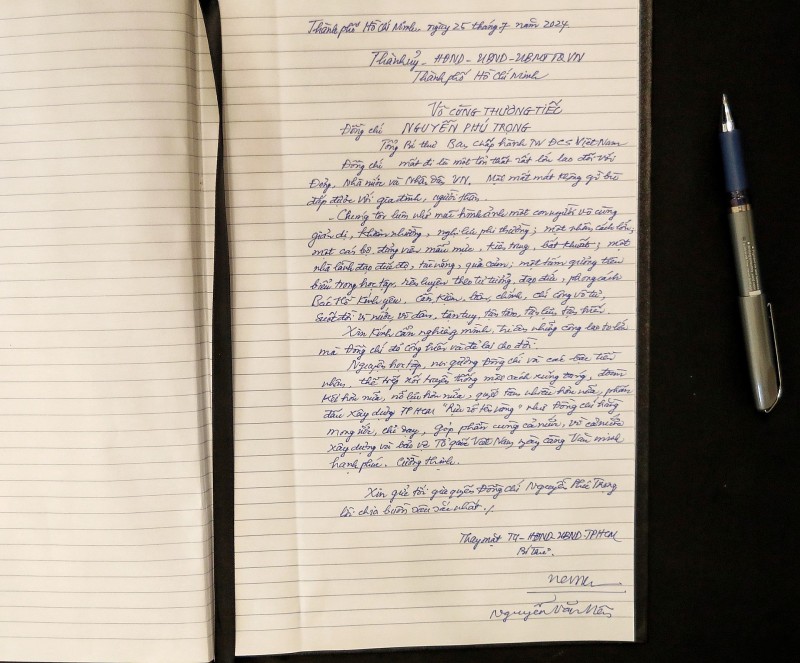 Thành phố Hồ Chí Minh, ngày 25 tháng 7 năm 2024
Thành ủy - HĐND - UBND - UBMTTQVN
Thành phố Hồ Chí Minh
VÔ CÙNG THƯƠNG TIẾC
Đồng chí NGUYỄN PHÚ TRỌNG
Tổng Bí thư Ban Chấp hành TW ĐCS Việt Nam
Đồng chí mất đi là một tổn thất rất lớn lao đối với
Đảng, Nhà nước và Nhân dân VN. Một mất mát không gì bù
đắp được với gia đình, người thân.
- Chúng tôi luôn nhớ mãi hình ảnh một con người vô cùng
giản dị, khiêm nhường, nghị lực phi thường; một nhân cách lớn;
một cán bộ, đảng viên mẫu mực, kiên trung, bất khuất; một
nhà lãnh đạo đức độ, tài năng, quả cảm; một tấm gương tiêu
biểu trong học tập, rèn luyện theo tư tưởng, đạo đức, phong cách
Bác Hồ kính yêu, Cần, Kiệm, liêm, chính, chí công vô tư,
suốt đời vì nước, vì dân, tận tụy, tận tâm, tận lực, tận hiến.
Xin kính cẩn nghiêng mình, tri ân những công lao to lớn
mà Đồng chí đã cống hiến và để lại cho đời.
Nguyện học tập, noi gương Đồng chí và các bậc tiền
nhân, thế hệ tiếp nối truyền thống một cách xứng đáng, đoàn
kết hơn nữa, nỗ lực hơn nữa, quyết tâm nhiều hơn nữa, phấn
đấu xây dựng TPHCM "rực rỡ tên vàng" như Đồng chí hằng
mong ước, chỉ dạy, góp phần cùng cả nước, vì cả nước
xây dựng và bảo vệ Tổ quốc Việt Nam ngày càng Văn minh
hạnh phúc, Cường thịnh.
Xin gửi tới gia quyến Đồng chí Nguyễn Phú Trọng
lời chia buồn sâu sắc nhất ./.
Thay mặt TU - HĐND - UBND - TPHCM
Bí thư.
Nguyễn Văn Nên